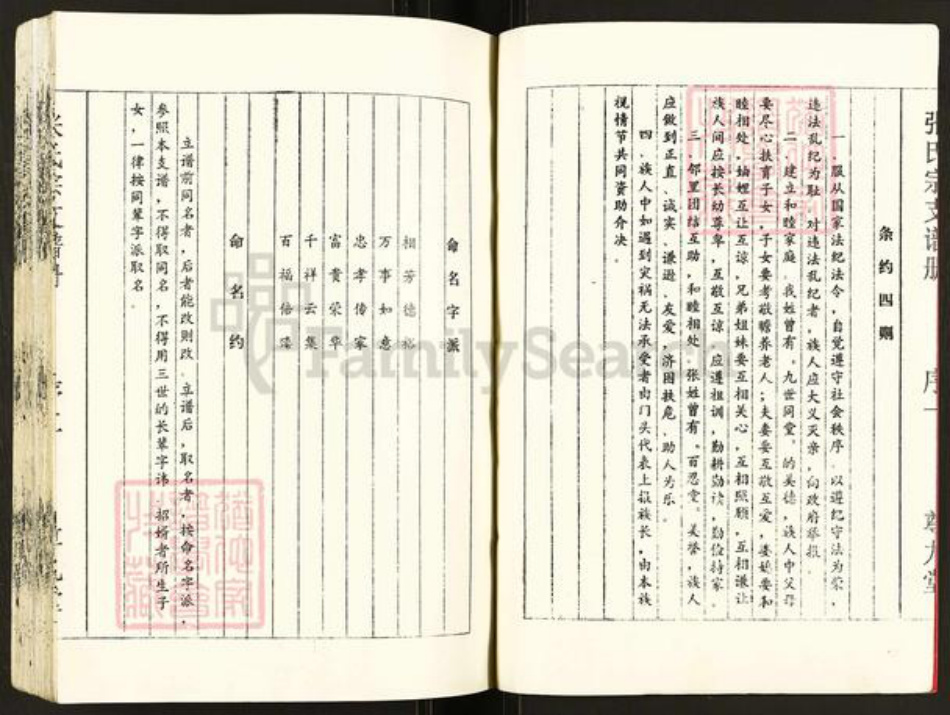 张氏宗支谱册
序一
尊九堂
条约四则
一、服从国家法纪法令，自觉遵守社会秩序。以遵纪守法为荣，
违法乱纪为耻。对违法乱纪者，族人应大义灭亲，向政府举报。
二、建立和睦家庭。我姓曾有“九世同堂”的美德，族人中父母
要尽心扶育子女，子女要孝敬赡养老人；夫妻要互敬互爱，婆媳要和
睦相处，妯娌互让互谅，兄弟姐妹要互相关心，互相照顾，互相谦让
族人间应按长幼尊卑，互敬互谅。应遵祖训，勤耕勤读，勤俭持家。
三、邻里团结互助，和睦相处。张姓曾有“百忍堂”美誉，族人
应做到正直、诚实、谦逊、友爱，济困扶危，助人为乐。
四、族人中如遇到灾祸无法承受者由门头代表上报族长，由本族
视情节共同资助介决。
命名字派
相芳德裕
万事如意
忠孝传家
富贵荣华
千祥云集
百福倍臻
命名约
立谱前同名者，后者能改则改。立谱后，取名者，按命名字派，
参照本支谱，不得取同名，不得用三世的长辈字讳。招婿者所生子
女，一律按同辈字派取名。
FamilySearch